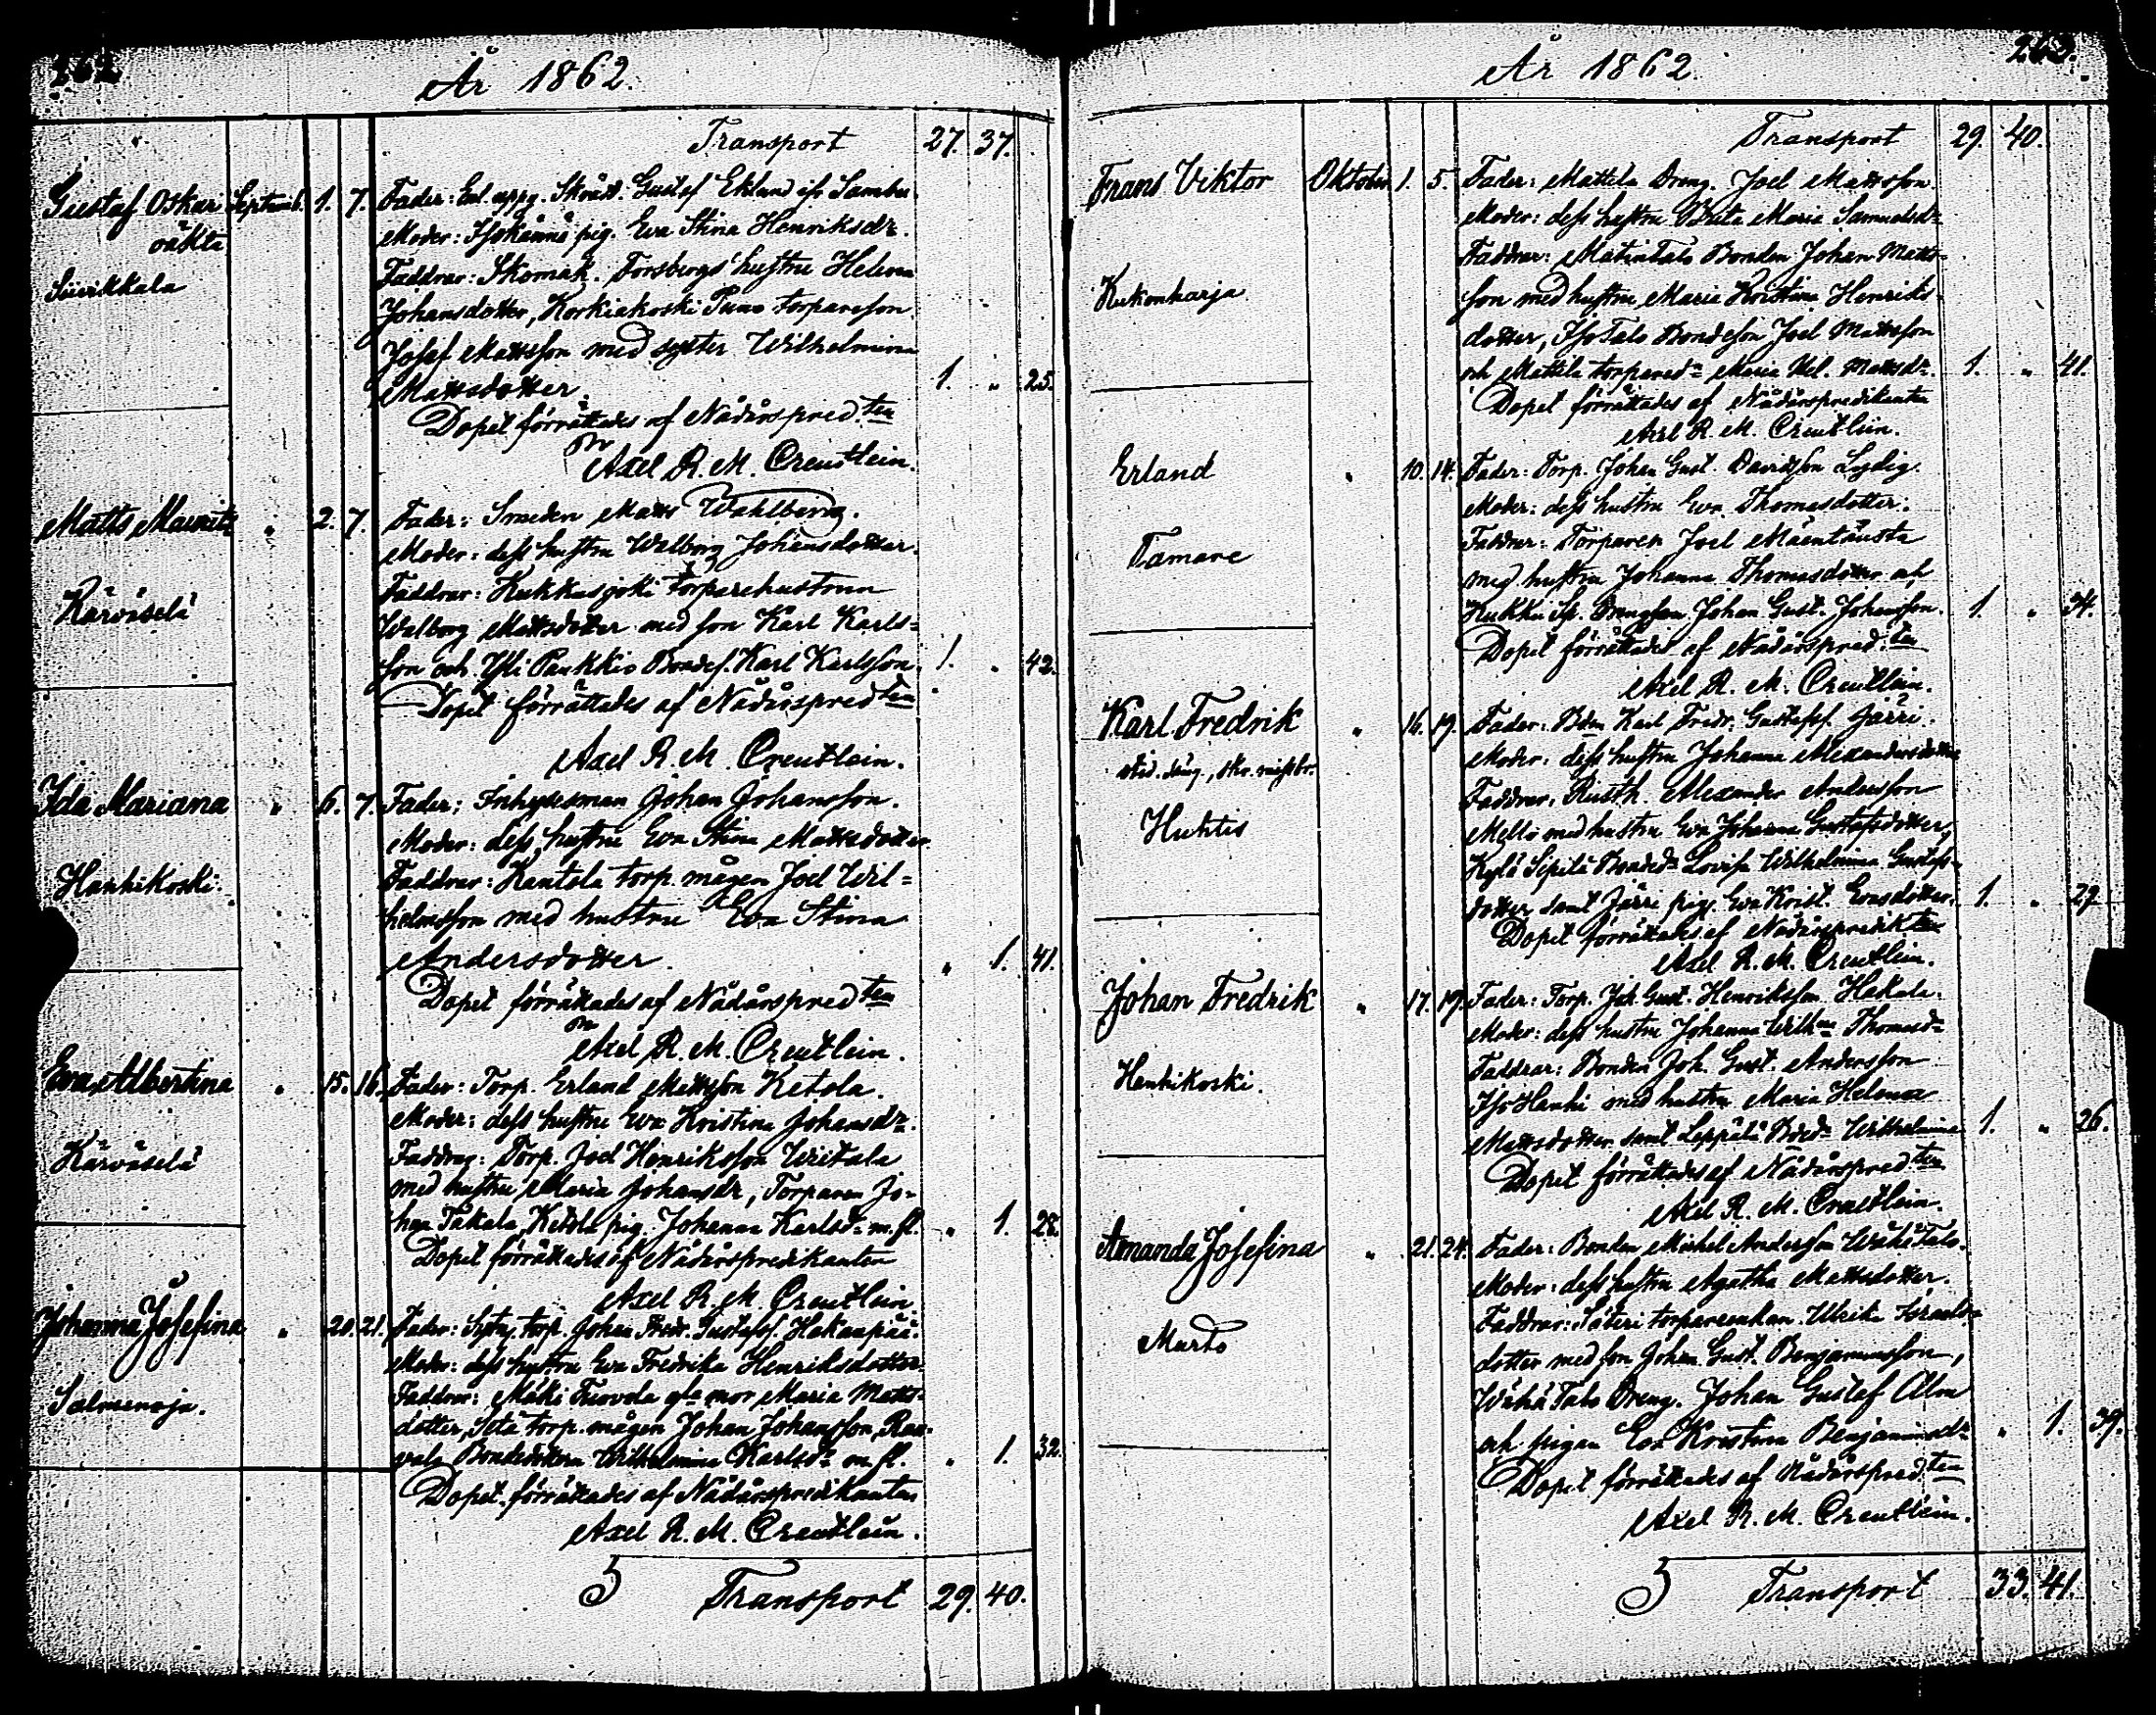 262
År 1862.
Transport 27. 37.
Gustaf Oskar Septemb. 1. 7. Fader: Enl. uppg. Skrädd. Gustaf Eklund ifr
oäkta Moder: pig. Eva Stina Henriksdr.
Suikkala Faddrar: Skomak. Forsbergs hustru Helena
Johansdotter, Korkiakoski Puno torpareson
Josef Mattsson med syster Wilhelmina
Mattsdotter. 1. " 25.
Dopet förrättades af Nådårspred.ten
Axel R. M. Creutlein.
Matts Mauritz " 2. 7. Fader: Smeden Matts Wahlberg.
Moder: dess hustru Walborg Johansdotter.
Kärväselä Faddrar: Kukkasjoki torparehustrun
Walborg Mattsdotter med son Karl Karls-
son och Yli Paukkio Bondes. Karl Karlsson. 1. " 42.
Dopet förrättades af Nådårspredten
Axel R. M. Creutlein.
Ida Mariana " 6. 7. Fader: Inhysesman Johan Johansson.
Moder: dess hustru Eva Stina Mattsdotter.
Hanhikoski. Faddrar: Rantola torp. mågen Joel Wil-
helmsson med hustru Eva Stina
Andersdotter. " 1. 41.
Dopet förrättades af Nådårspredten
Axel R. M. Creutlein.
Eva Albertina " 15. 16. Fader: Torp. Erland Mattsson Ketola.
Moder: dess hustru Eva Kristina Johansdr.
Kärväselä Faddrag: Torp. Joel Henriksson Wiitala
med hustru Maria Johansdr, Torparen Jo-
han Takala, Ketola pig. Johanna Karlsdr m. fl. " 1. 28.
Dopet förrättades af Nådårspredikanten
Axel R. M. Creutlein.
Johanna Josefina " 20. 21. Fader: torp. Johan Fredr. Gustafss. Hakaapää.
Moder: dess hustru Eva Fredrika Henriksdotter.
Salmenoja. Faddrar: Mäki Tuovola mor Maria Matts-
dotter, Setä torp. mågen Johan Johansson,
Bondedottern Wilhelmina Karlsdr m. fl. " 1. 32.
Dopet förrättades af Nådårspredikanten
Axel R. M. Creutlein.
5 Transport 29. 40.
263.
År 1862.
Transport 29. 40.
Frans Viktor Oktober 1. 5. Fader: Mattila Dreng. Joel Mattsson.
Moder: dess hustru Brita Maria Samuelsdr
Faddrar: Matintalo Bonden Johan Matts-
Kukonharja son med hustru Maria Kristina Henriks-
dotter, Iso Talo Bondeson Joel Mattsson
och Mattila torpared. Maria Hel. Mattsdr. 1. " 41.
Dopet förrättades af Nådårspredikanten
Axel R. M. Creutlein.
Erland " 10. 14. Fader: Torp. Johan Gust. Davidsson Lydig.
Moder: dess hustru Eva Thomasdotter.
Tamare Faddrar: Torparen Joel Mäentausta
med hustru Johanna Thomasdotter och
Kukku Sp. Drengson. Johan Gust. Johansson. 1. " 34.
Dopet förrättades af Nådårspred.ten
Axel R. M. Creutlein.
Karl Fredrik " 16. 19. Fader: Bdn Karl Fredr. Gustafss. Järri.
Moder: dess hustru Johanna Alexandersdotter
Huhtis Faddrar: Rusth. Alexander Andersson
Mello med hustru Eva Johanna Gustafsdotter,
Kylä Sipilä Bonded. Lovisa Wilhelmina Gustafs-
dotter samt Järri pig. Eva Krist. Ersdotter. 1. " 29.
Dopet förrättades af Nådårspredikten
Axel R. M. Creutlein.
Johan Fredrik " 17. 19. Fader: Torp. Joh. Gust. Henriksson Hakala.
Moder: dess hustru Johanna Wilhna Thomasdr
Hanhikoski. Faddrar: Bonden Joh. Gust. Andersson
Iso Hanhi med hustru Maria Helena
Mattsdotter samt Leppälä Bdedr Wilhelmina 1. " 26.
Dopet förrättades af Nådårspredten
Axel R. M. Creutlein.
Amanda Josefina " 21. 24. Fader: Bonden Michel Andersson Wähä Talo.
Moder: dess hustru Agatha Mattsdotter.
Murto Faddrar: Säteri torpareenkan Ulrika Israels-
dotter med son Johan Gust. Benjaminsson,
Wähä Talo Dreng. Johan Gustaf Alm
och pigan Eva Kristina Benjaminsdr " 1. 39.
Dopet förrättades af Nådårspred.ten
Axel R. M. Creutlein.
5 Transport 33. 41.